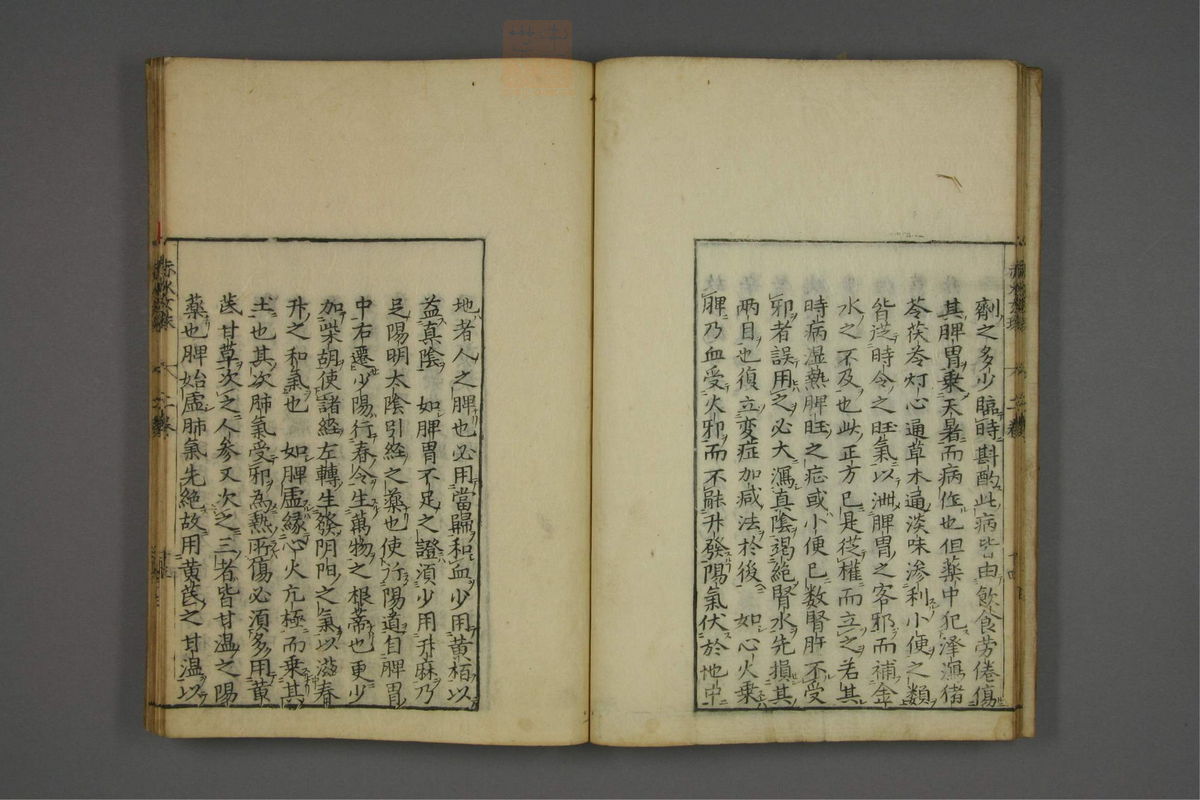 劑之多少臨時斟酌此病皆由飲食劳倦傷
其脾胃乗天暑而病作也但薬中犯澤瀉猪
苓茯苓灯心通草木通淡味渗利小便之類
皆從時令之旺氣以泄脾胃之客邪而補金
水之不及也此正方已是從權而立之若其
時病湿熱脾旺之症或小便已数腎肝不受
邪者誤用之必大瀉真陰竭絶腎水先損其
両目也復立変症加减法於後　如心火乗
脾乃血受火邪而不能升發陽氣伏於地中
地者人之脾也必用當歸和血少用黄栢以
益真陰　如脾胃不足之證湏少用升麻乃
足陽明太陰引經之薬也使行陽道自脾胃
中右遷少陽行春令生萬物之根蒂也更少
加柴胡使諸經左轉生發阴阳之氣以滋春
升之和氣也　如脾虚縁心火亢極而乗其
土也其次肺氣受邪為熱所傷必須多用黄
茋甘草次之人参又次之三者皆甘温之陽
薬也脾始虚肺氣先絶故用黄茋之甘温以